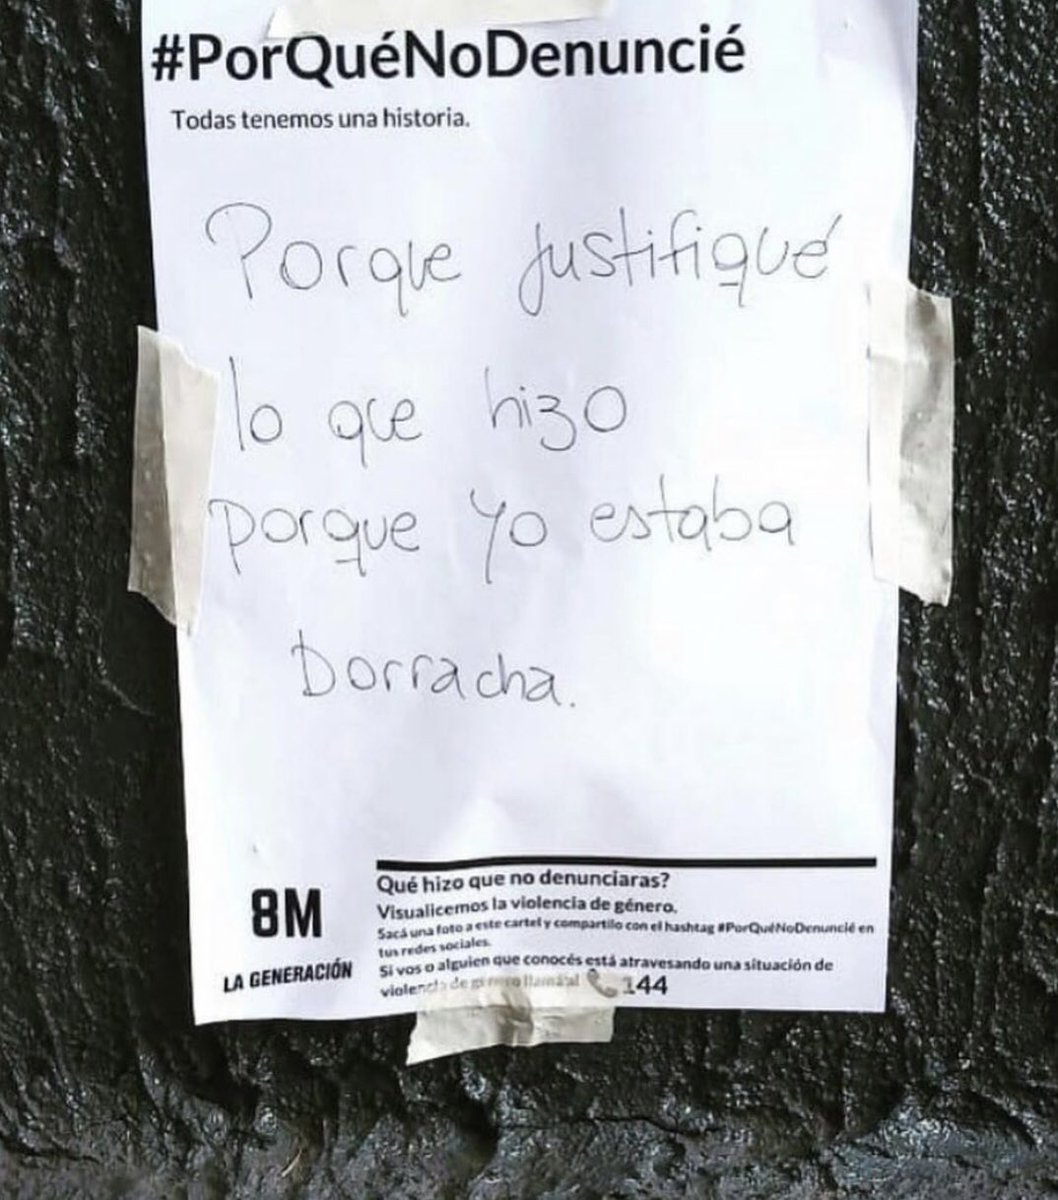 #PorQuéNoDenuncié
Todas tenemos una historia.
Porque justifiqué
lo que hizo
porque yo estaba
borracha.
8M
LA GENERACIÓN
Qué hizo que no denunciaras?
Visualicemos la violencia de género.
Sacá una foto a este cartel y compartilo con el hashtag #PorQuéNoDenuncié en
tus redes sociales.
Si vos o alguien que conocés está atravesando una situación de
violencia de género llamá al 144